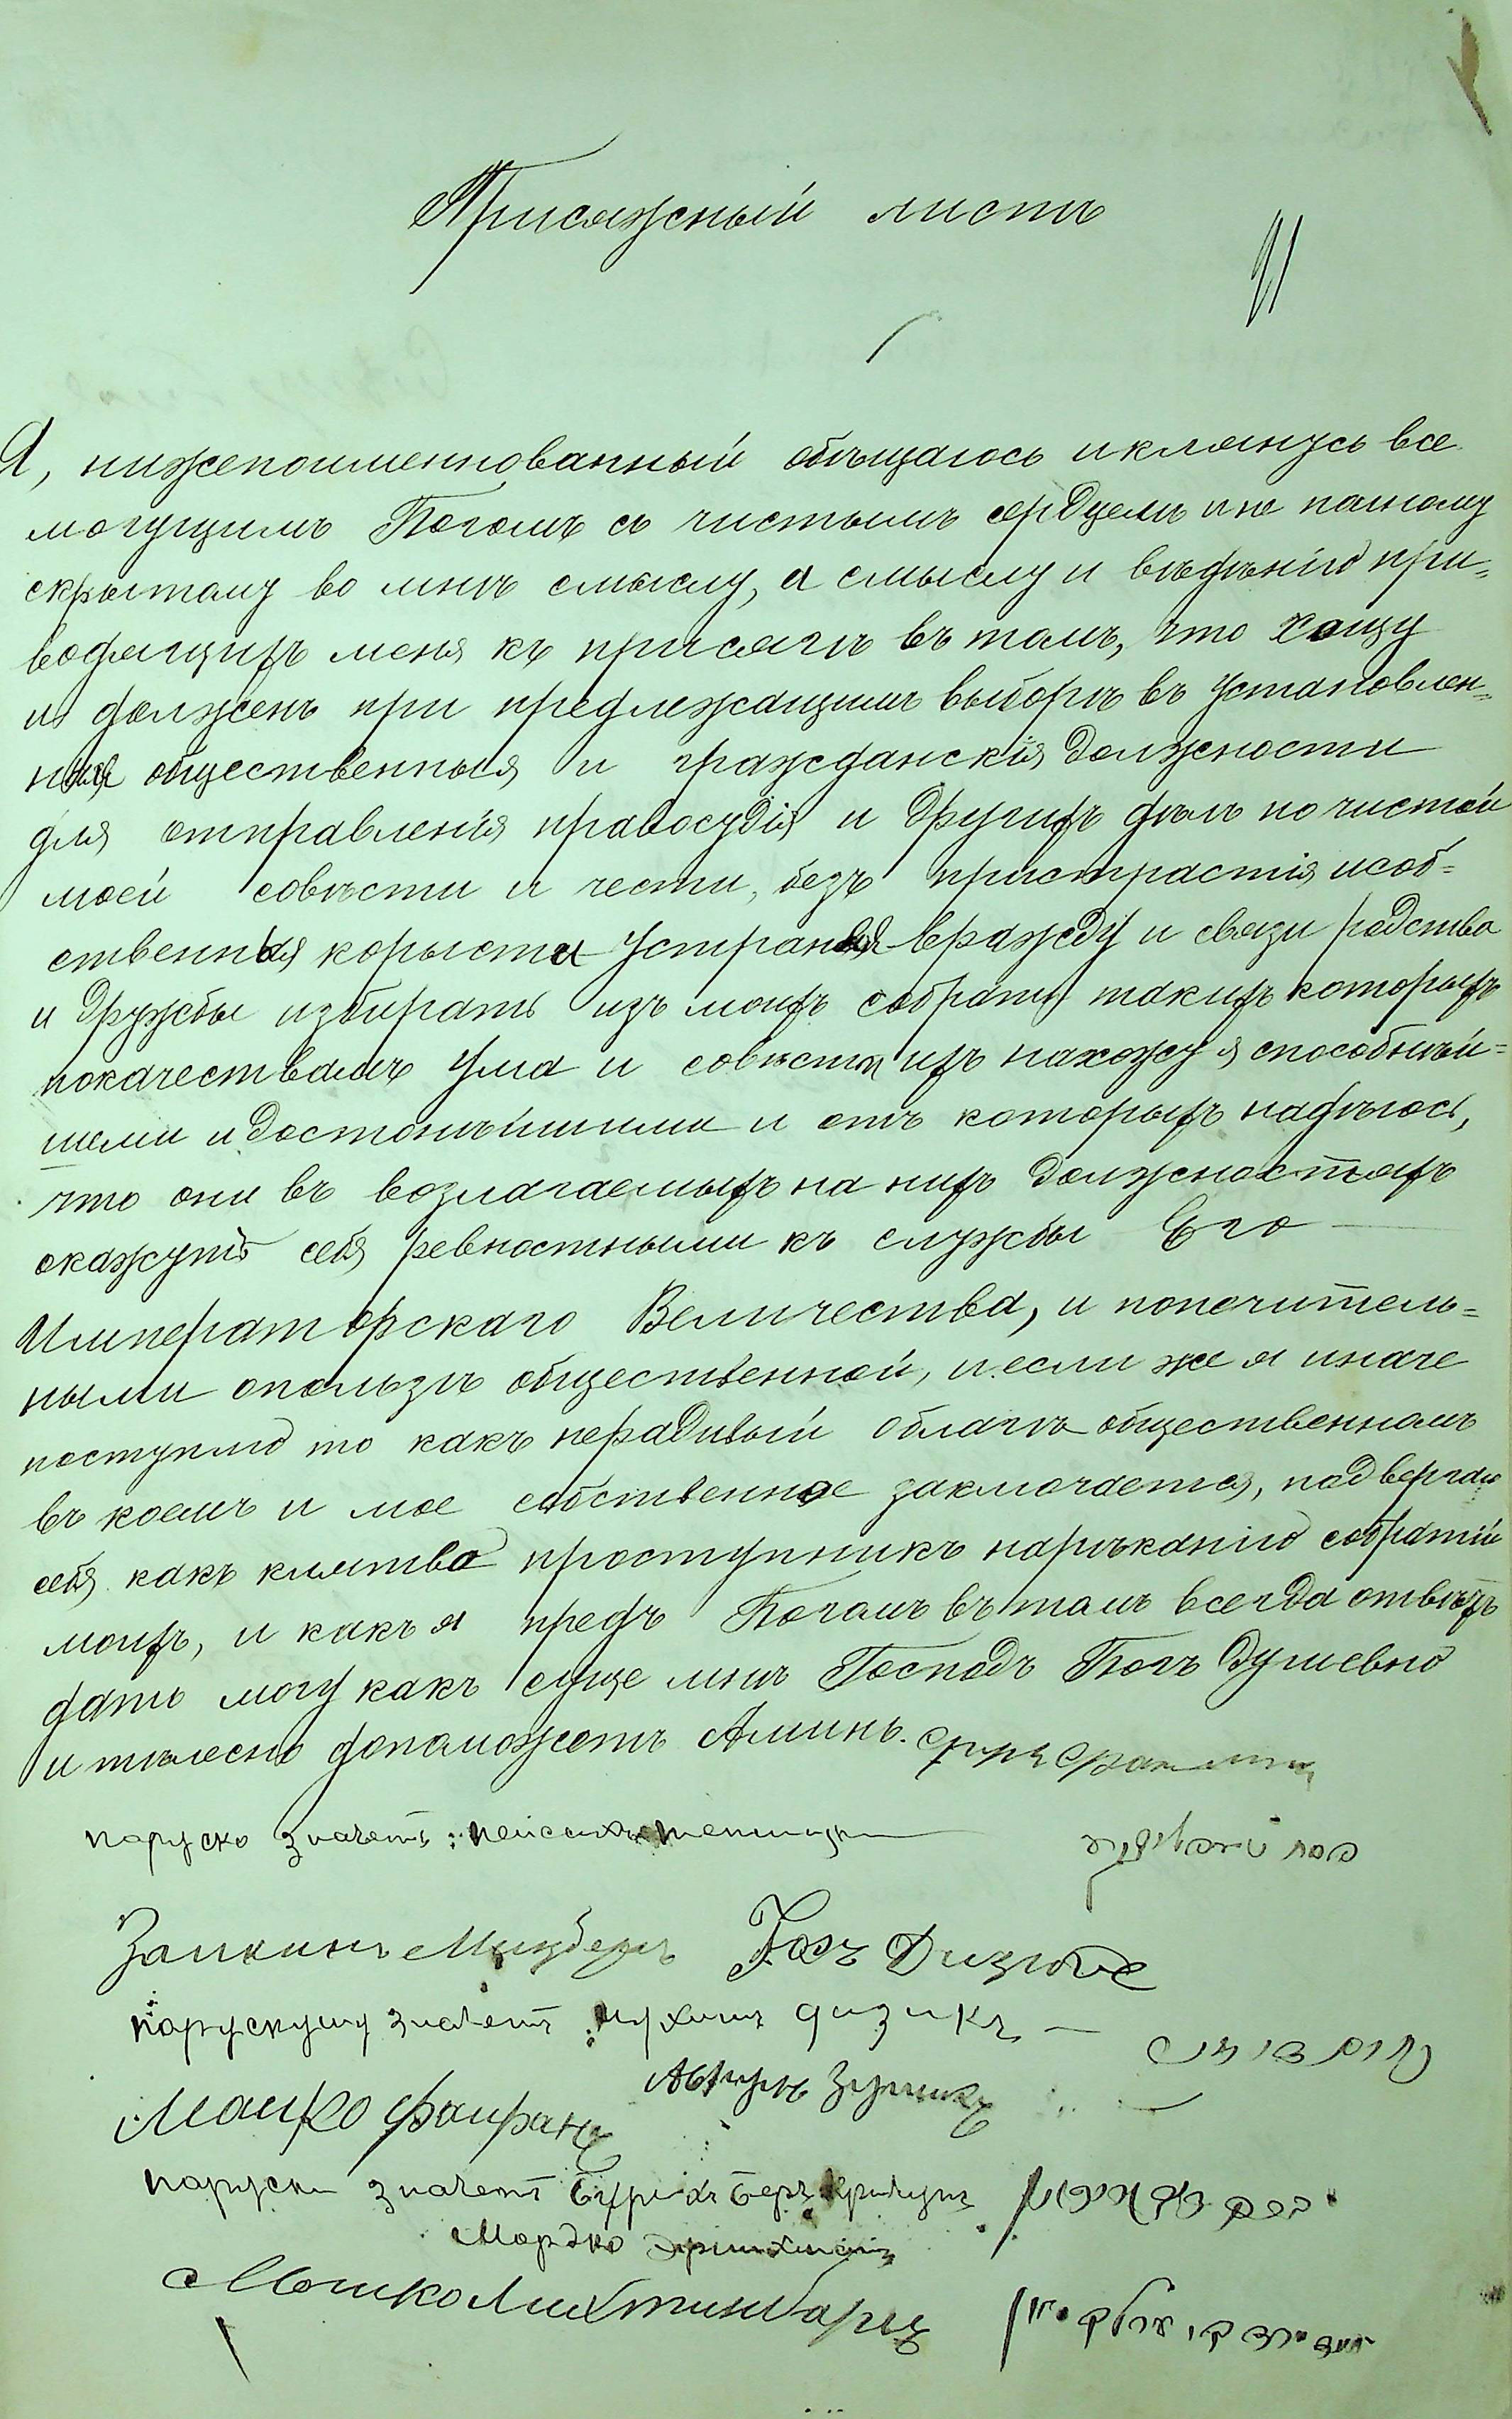 Присяжный листъ
Я, нижепоименнованный обѣщаюсь и клянусь все
могущимъ Богомъ съ чистымъ сердцемъ и не по иному
скрытому во мнѣ смыслу, а смыслу и вѣдѣнію при-
водящихъ меня къ присягѣ въ томъ, что хощу
и долженъ при предлежащимъ выборѣ въ установлен-
ные общественныя и гражданскія должности
для отправленія правосудія и другихъ дѣлъ по чистой
моей совѣсти и чести, безъ пристрастія и соб-
ственныя корысти устраняя вражду и связи родства
и дружбы избирать изъ моихъ собратій такихъ которыхъ
по качествамъ ума и совѣсти ихъ нахожу я способнѣй-
шеми и достойнѣйшими и отъ которыхъ надѣюсь,
что они въ возлагаемыхъ на нихъ должностяхъ
окажутъ себя ревностными къ службы Его
Императорскаго Величества, и попечитель-
ными о пользѣ общественной, и если же я иначе
поступлю то какъ нерадивый о благѣ общественномъ
въ коемъ и мое собственное заключается, подвергаю
себя какъ клятво проступникъ нарѣканію собратій
моихъ, и какъ я предъ Богомъ въ томъ всегда отвѣтъ
дать могу какъ суще мнѣ Господь Богъ душевно
и тѣлесно допоможетъ Аминь.
поруско значетъ:
значетъ дизикъ
Мошко
поруски значетъ Беръ
Мордко
Мошко Лихтинбарц